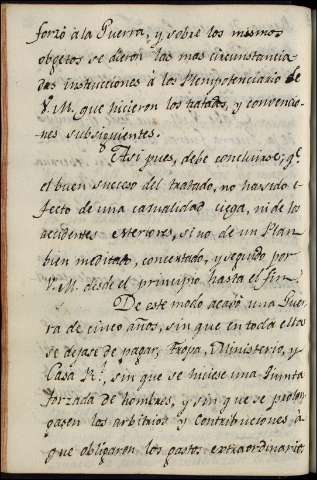 forzó à la Guerra, y sobre los mismos
objetos se dieron las mas circunstancia
das instrucciones à los Plenipotenciarios de
V. M. que hicieron los tratados, y convencio
nes subsiguientes.
Asi pues, debe concluirse, qe.
el buen suceso del tratado, no ha sido e-
fecto de una casualidad ciega, ni de los
accidentes exteriores, sino de un Plan
bien meditado, concertado, y seguido por
V. M. desde el principio hasta el fin.
De este modo acabó una Gue
rra de cinco años, sin que en toda ella
se dejase de pagar, Tropa, Ministerio, y
Casa Rl., sin que se hiciese una Junta
forzada de hombres, y sin que se prolon
gasen los arbitrios y Contribuciones à
que obligaron los gastos extraordinarios